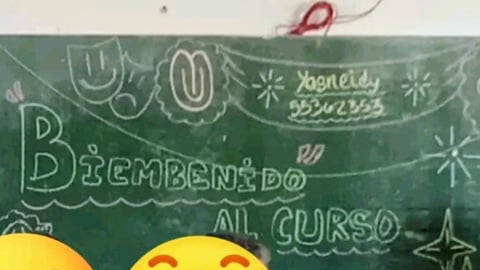 Yasneidy
55362353
BIEMBENIDO
AL CURSO